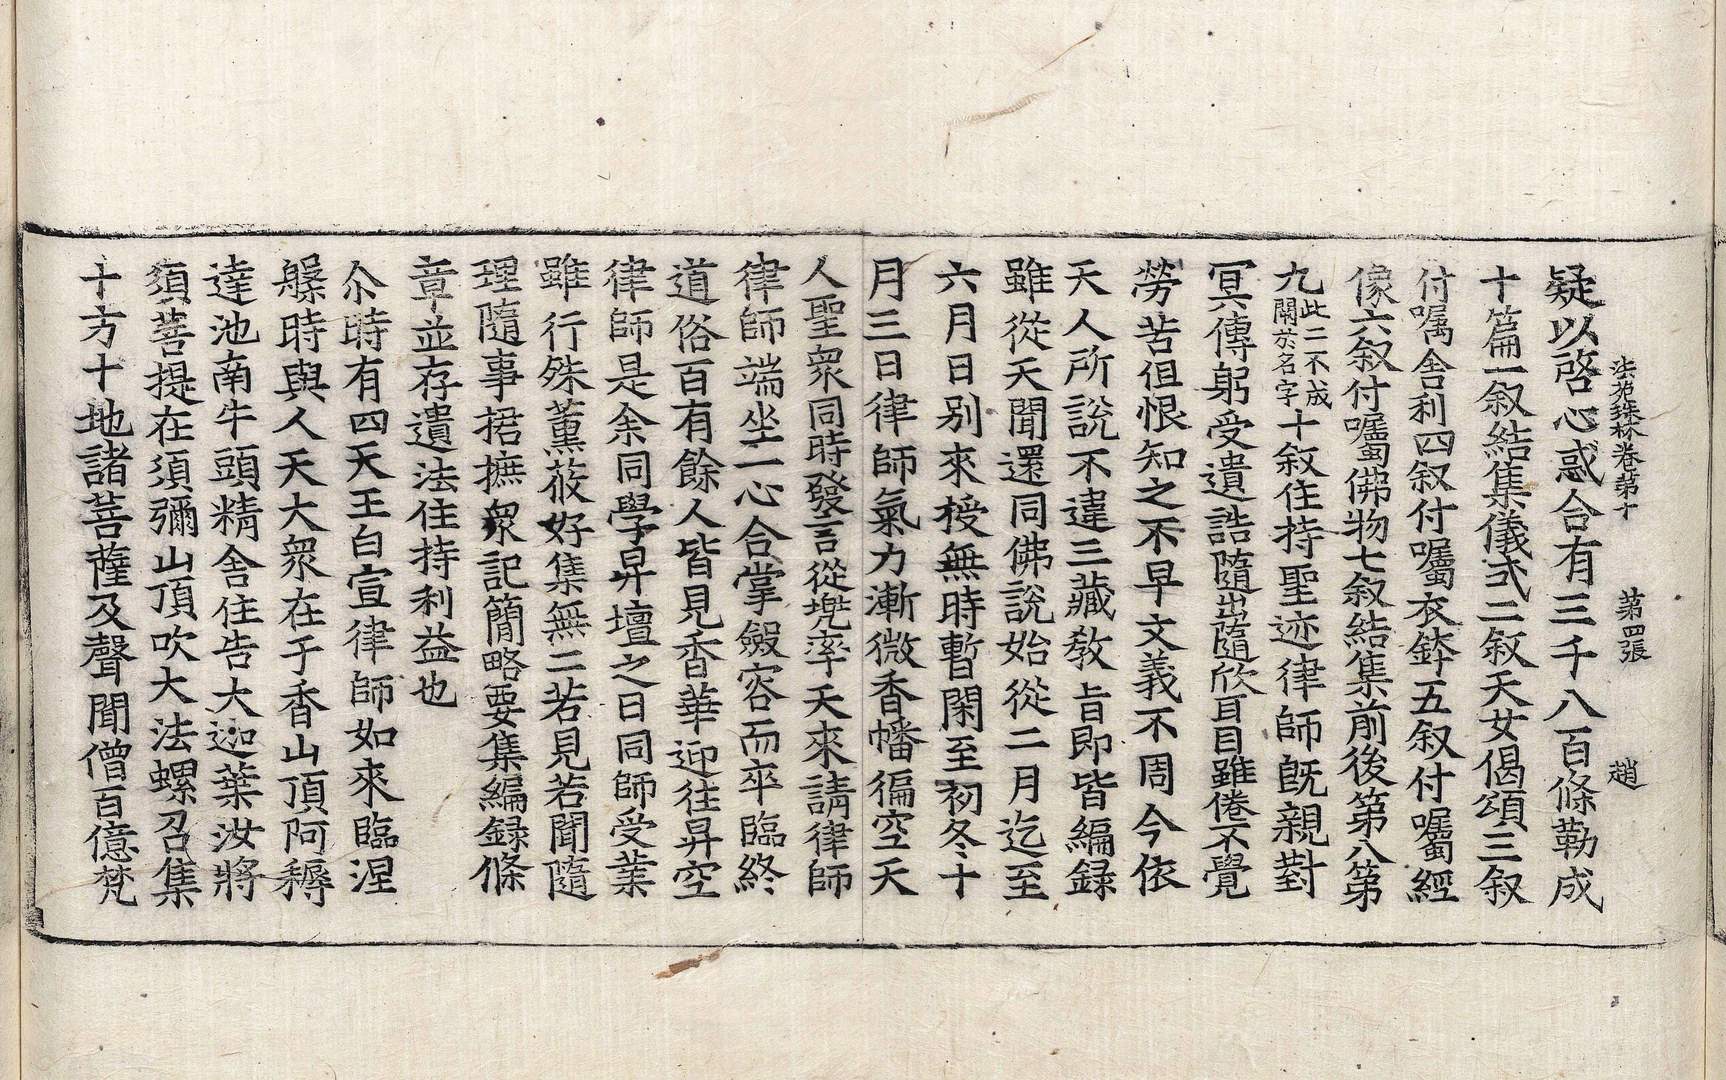 法苑珠林卷第十 第四張 趙
疑以啓心惑合有三千八百條勒成
十篇一叙結集儀式二叙天女偈頌三叙
付嘱舍利四叙付囑衣鉢五叙付囑經
像六叙付囑佛物七叙結集前後第八第
九此二不成闕於名字十叙住持聖迹律師旣親對
冥傳躬受遺誥隨出隨欣耳目雖倦不覺
勞苦但恨知之不早文義不周今依
天人所說不違三藏教旨即皆編録
雖從天聞還同佛說始從二月迄至
六月日別來授無時暫閑至初冬十
月三日律師氣力漸微香幡徧空天
人聖衆同時發言從兜率天來請律師
律師端坐一心合掌斂容而卒臨終
道俗百有餘人皆見香華迎往昇空
律師是余同學昇壇之日同師受業
雖行殊薰莸好集無二若見若聞隨
理隨事捃摭衆記簡略要集編録條
章並存遺法住持利益也
尒時有四天王白宣律師如來臨涅
槃時與人天大衆在于香山頂阿耨
達池南牛頭精舍住告大迦葉汝將
須菩提在須彌山頂吹大法螺召集
十方十地諸菩薩及聲聞僧百億梵